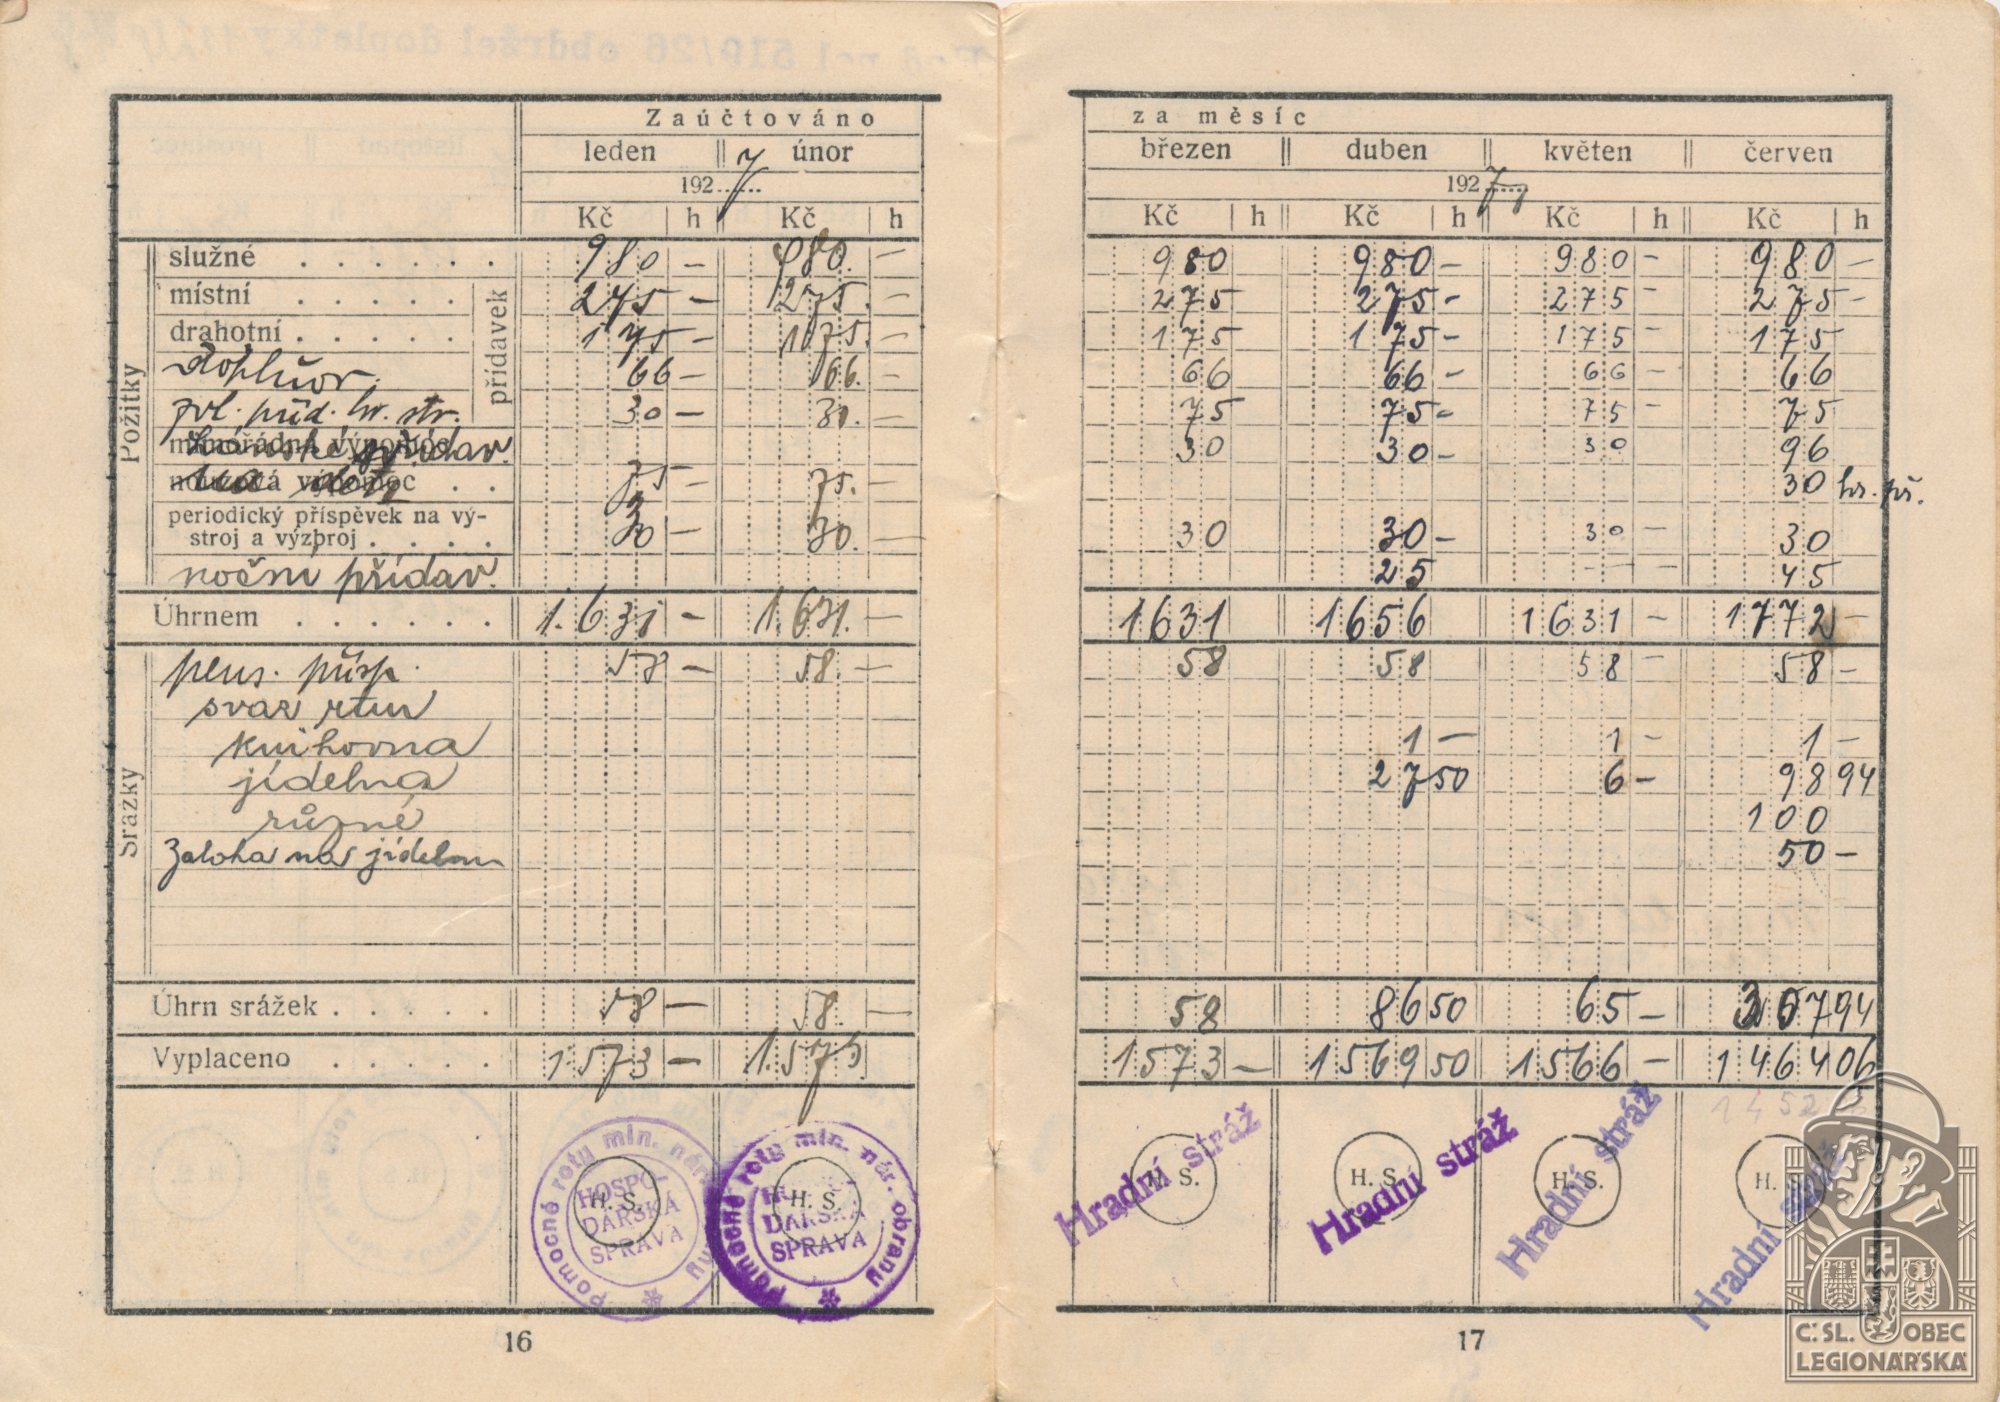 Zaúčtováno
leden || únor
192 7
Kč | h || Kč | h
služné 980 — 980. —
místní 275 — 275. —
drahotní 175 — 175. —
66 — 66. —
zvl. příd. hr. str. 30 — 30. —
přídavek
Požitky
75 — 75. —
periodický příspěvek na vý-
stroj a výzbroj 30 — 30. —
noční přídav.
Úhrnem 1.631 — 1.631. —
Srážky
pens. přísp. 58 — 58. —
svaz rtm
knihovna
jídelna
různé
Záloha na jídelnu
Úhrn srážek 58 — 58. —
Vyplaceno 1.573 — 1.573.
Pomocné roty min. nár.
HOSPO-
DÁŘSKÁ
SPRÁVA
H. S.
Pomocné roty min. nár. obrany
DÁŘSKÁ
SPRÁVA
H. S.
16
za měsíc
březen || duben || květen || červen
192 7
Kč | h || Kč | h || Kč | h || Kč | h
980 980 — 980 — 980 —
275 275 — 275 — 275 —
175 175 — 175 — 175
66 66 — 66 — 66
75 75 — 75 — 75
30 30 — 30 96
30 hr. př.
30 30 — 30 — 30
25 — — — 45
1631 1656 1631 — 1772 —
58 58 58 — 58 —
1 — 1 — 1 —
27 50 6 — 98 94
100
50 —
58 86 50 65 — 307 94
1573 — 1569 50 1566 — 1464 06
H. S. H. S. H. S. H. S.
Hradní stráž Hradní stráž Hradní stráž Hradní stráž
17
Č. SL. OBEC
LEGIONÁŘSKÁ